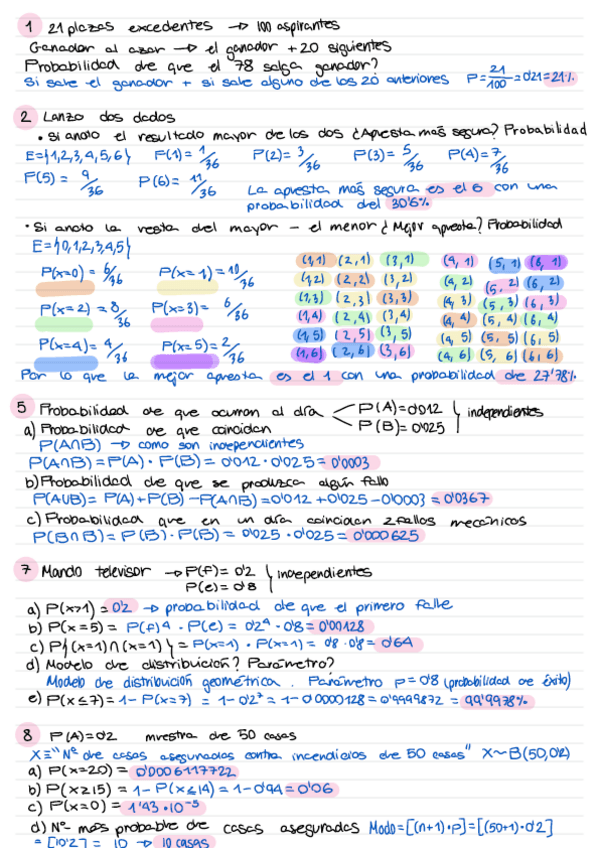 1 21 plazas excedentes → 100 aspirantes
Ganador al azar → el ganador + 20 siguientes
Probabilidad de que el 78 salga ganador?
Si sale el ganador + si sale alguno de los 20 anteriores P = 21/100 = 0'21 = 21%
2 Lanzo dos dados
• Si anoto el resultado mayor de los dos ¿Apuesta más segura? Probabilidad
E={1,2,3,4,5,6} P(1) = 1/36 P(2) = 3/36 P(3) = 5/36 P(4) = 7/36
P(5) = 9/36 P(6) = 11/36 La apuesta más segura es el 6 con una
probabilidad del 30'6%
• Si anoto la resta del mayor – el menor ¿Mejor apuesta? Probabilidad
E={0,1,2,3,4,5}
P(x=0) = 6/36 P(x=1) = 10/36
P(x=2) = 8/36 P(x=3) = 6/36
P(x=4) = 4/36 P(x=5) = 2/36
(1,1) (2,1) (3,1) (4,1) (5,1) (6,1)
(1,2) (2,2) (3,2) (4,2) (5,2) (6,2)
(1,3) (2,3) (3,3) (4,3) (5,3) (6,3)
(1,4) (2,4) (3,4) (4,4) (5,4) (6,4)
(1,5) (2,5) (3,5) (4,5) (5,5) (6,5)
(1,6) (2,6) (3,6) (4,6) (5,6) (6,6)
Por lo que la mejor apuesta es el 1 con una probabilidad de 27'78%
5 Probabilidad de que ocurran al día P(A) = 0'012 P(B) = 0'025 } independientes
a) Probabilidad de que coincidan
P(A∩B) → como son independientes
P(A∩B) = P(A) · P(B) = 0'012 · 0'025 = 0'0003
b) Probabilidad de que se produzca algún fallo
P(A∪B) = P(A) + P(B) – P(A∩B) = 0'012 + 0'025 – 0'0003 = 0'0367
c) Probabilidad que en un día coincidan 2 fallos mecánicos
P(B∩B) = P(B) · P(B) = 0'025 · 0'025 = 0'000625
7 Mando televisor → P(f) = 0'2 } independientes
P(e) = 0'8
a) P(x>1) = 0'2 → probabilidad de que el primero falle
b) P(x=5) = P(f)⁴ · P(e) = 0'2⁴ · 0'8 = 0'00128
c) P{(x=1)∩(x=1)} = P(x=1) · P(x=1) = 0'8 · 0'8 = 0'64
d) Modelo de distribución? Parámetro?
Modelo de distribución geométrica. Parámetro p = 0'8 (probabilidad de éxito)
e) P(x≤7) = 1 – P(x=7) = 1 – 0'2⁷ = 1 – 0'0000128 = 0'9999872 = 99'9978%
8 P(A) = 0'2 muestra de 50 casas
X≡"Nº de casas aseguradas contra incendicios de 50 casas" X~B(50,0'2)
a) P(x=20) = 0'0006117722
b) P(x≥15) = 1 – P(x≤14) = 1 – 0'94 = 0'06
c) P(x=0) = 1'43·10⁻⁵
d) Nº más probable de casas aseguradas Modo=[(n+1)·p] = [(50+1)·0'2]
= [10'2] = 10 → 10 casas